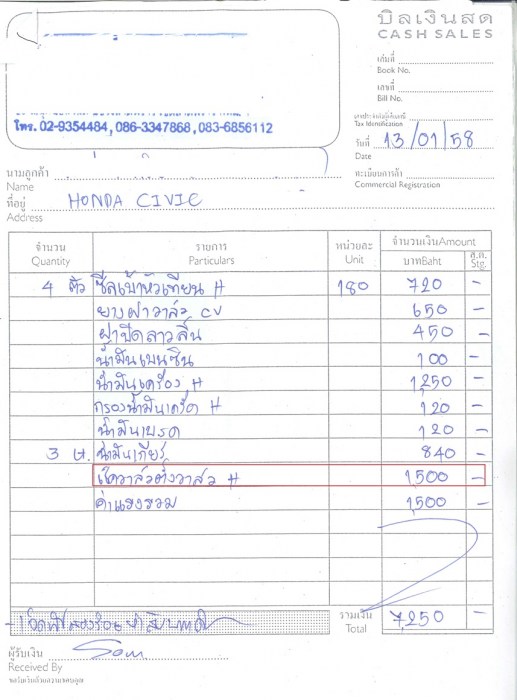 บิลเงินสด
CASH SALES
เล่มที่
Book No.
เลขที่
Bill No.
โทร. 02-9354484, 086-3347868, 083-6856112
เลขประจำตัวผู้เสียภาษี
Tax Identification
วันที่ 13/01/58
Date
นามลูกค้า
Name
ทะเบียนการค้า
Commercial Registration
ที่อยู่ HONDA CIVIC
Address
จำนวน รายการ หน่วยละ จำนวนเงินAmount
Quantity Particulars Unit บาทBaht ส.ต. Stg.
4 ตัว ซีลเบ้าหัวเทียน H 180 720 -
ยางฝาวาล์ว CV 650 -
ฝาปีดลาวลิ้น 450 -
น้ำมันเบนซิน 100 -
น้ำมันเครื่อง H 1,250 -
กรองน้ำมันเครื่อง H 120 -
น้ำมันเบรค 120 -
3 น้ำมันเกียร์ 840 -
วาล์วตั้งวาล์ว H 1,500 -
ค่าแรงรวม 1,500 -
รวมเงิน 7,250 -
Total
ผู้รับเงิน
Received By